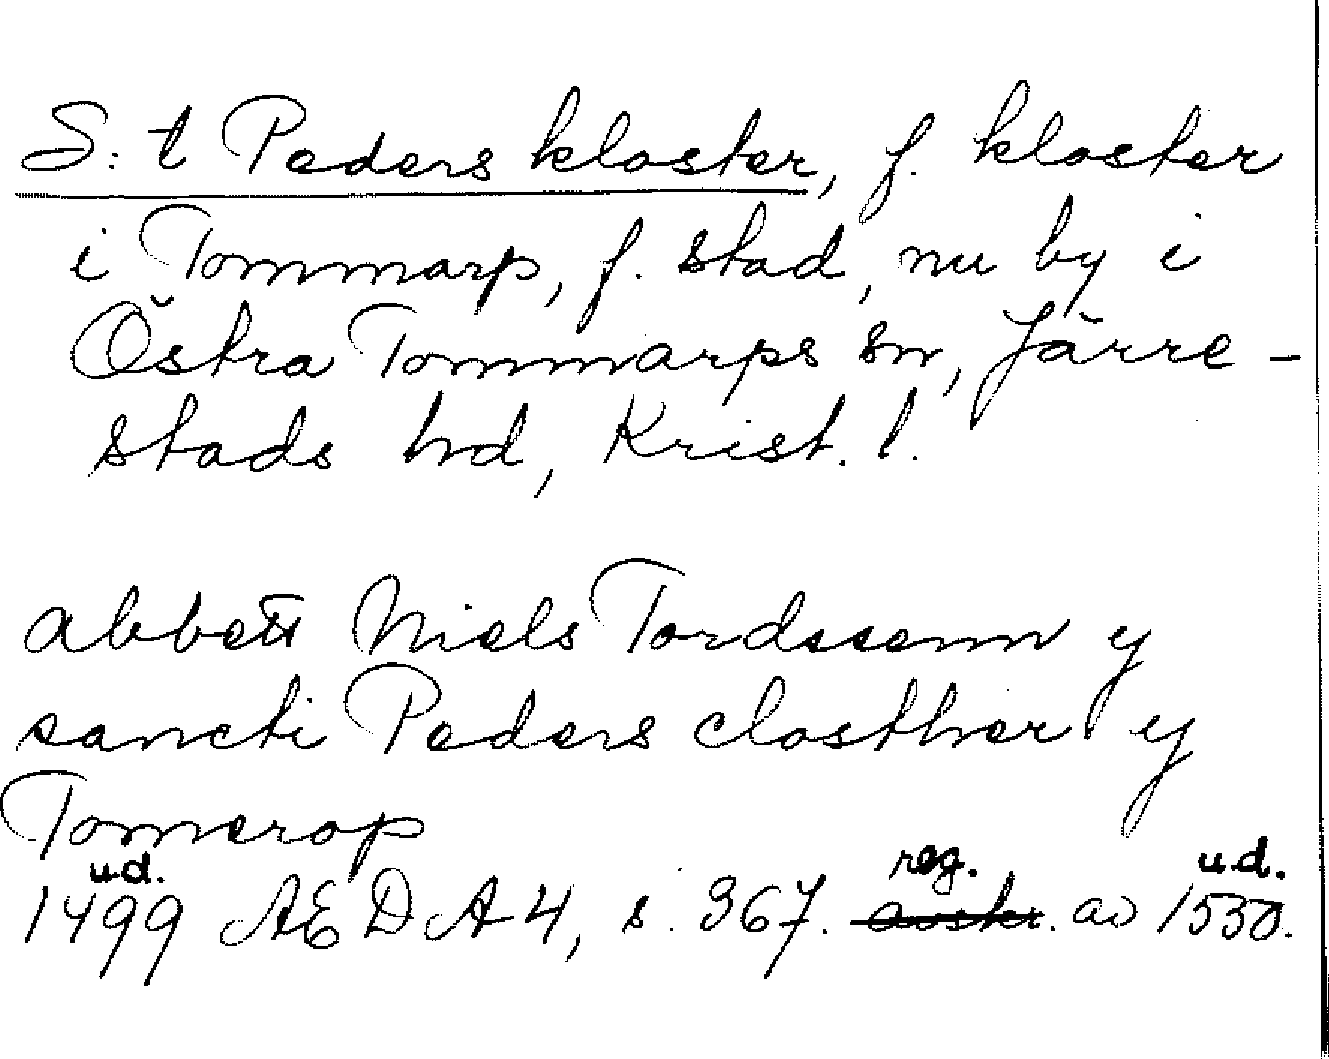 S:t Peders kloster, f. kloster
i Tommarp, f. stad, nu by i
Östra Tommarps sn, Järre-
stads hd, Krist. l.
abbett Niels Tordssenn y
sancti Peders closther y
Tomerop
u.d. reg. u.d.
1499 AEDA 4, s. 367. avskr. av 1550.